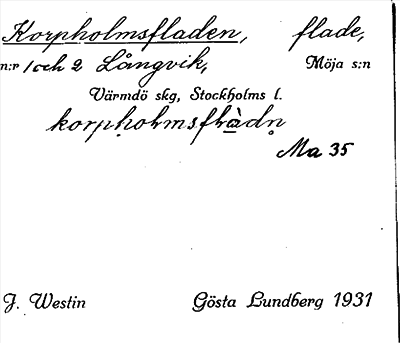 Korpholmsfladen, flade,
n:r 1 och 2 Långvik, Möja s:n
Värmdö skg, Stockholms l.
korpḥoḷmsflàdṇ
Ma 35
J. Westin Gösta Lundberg 1931